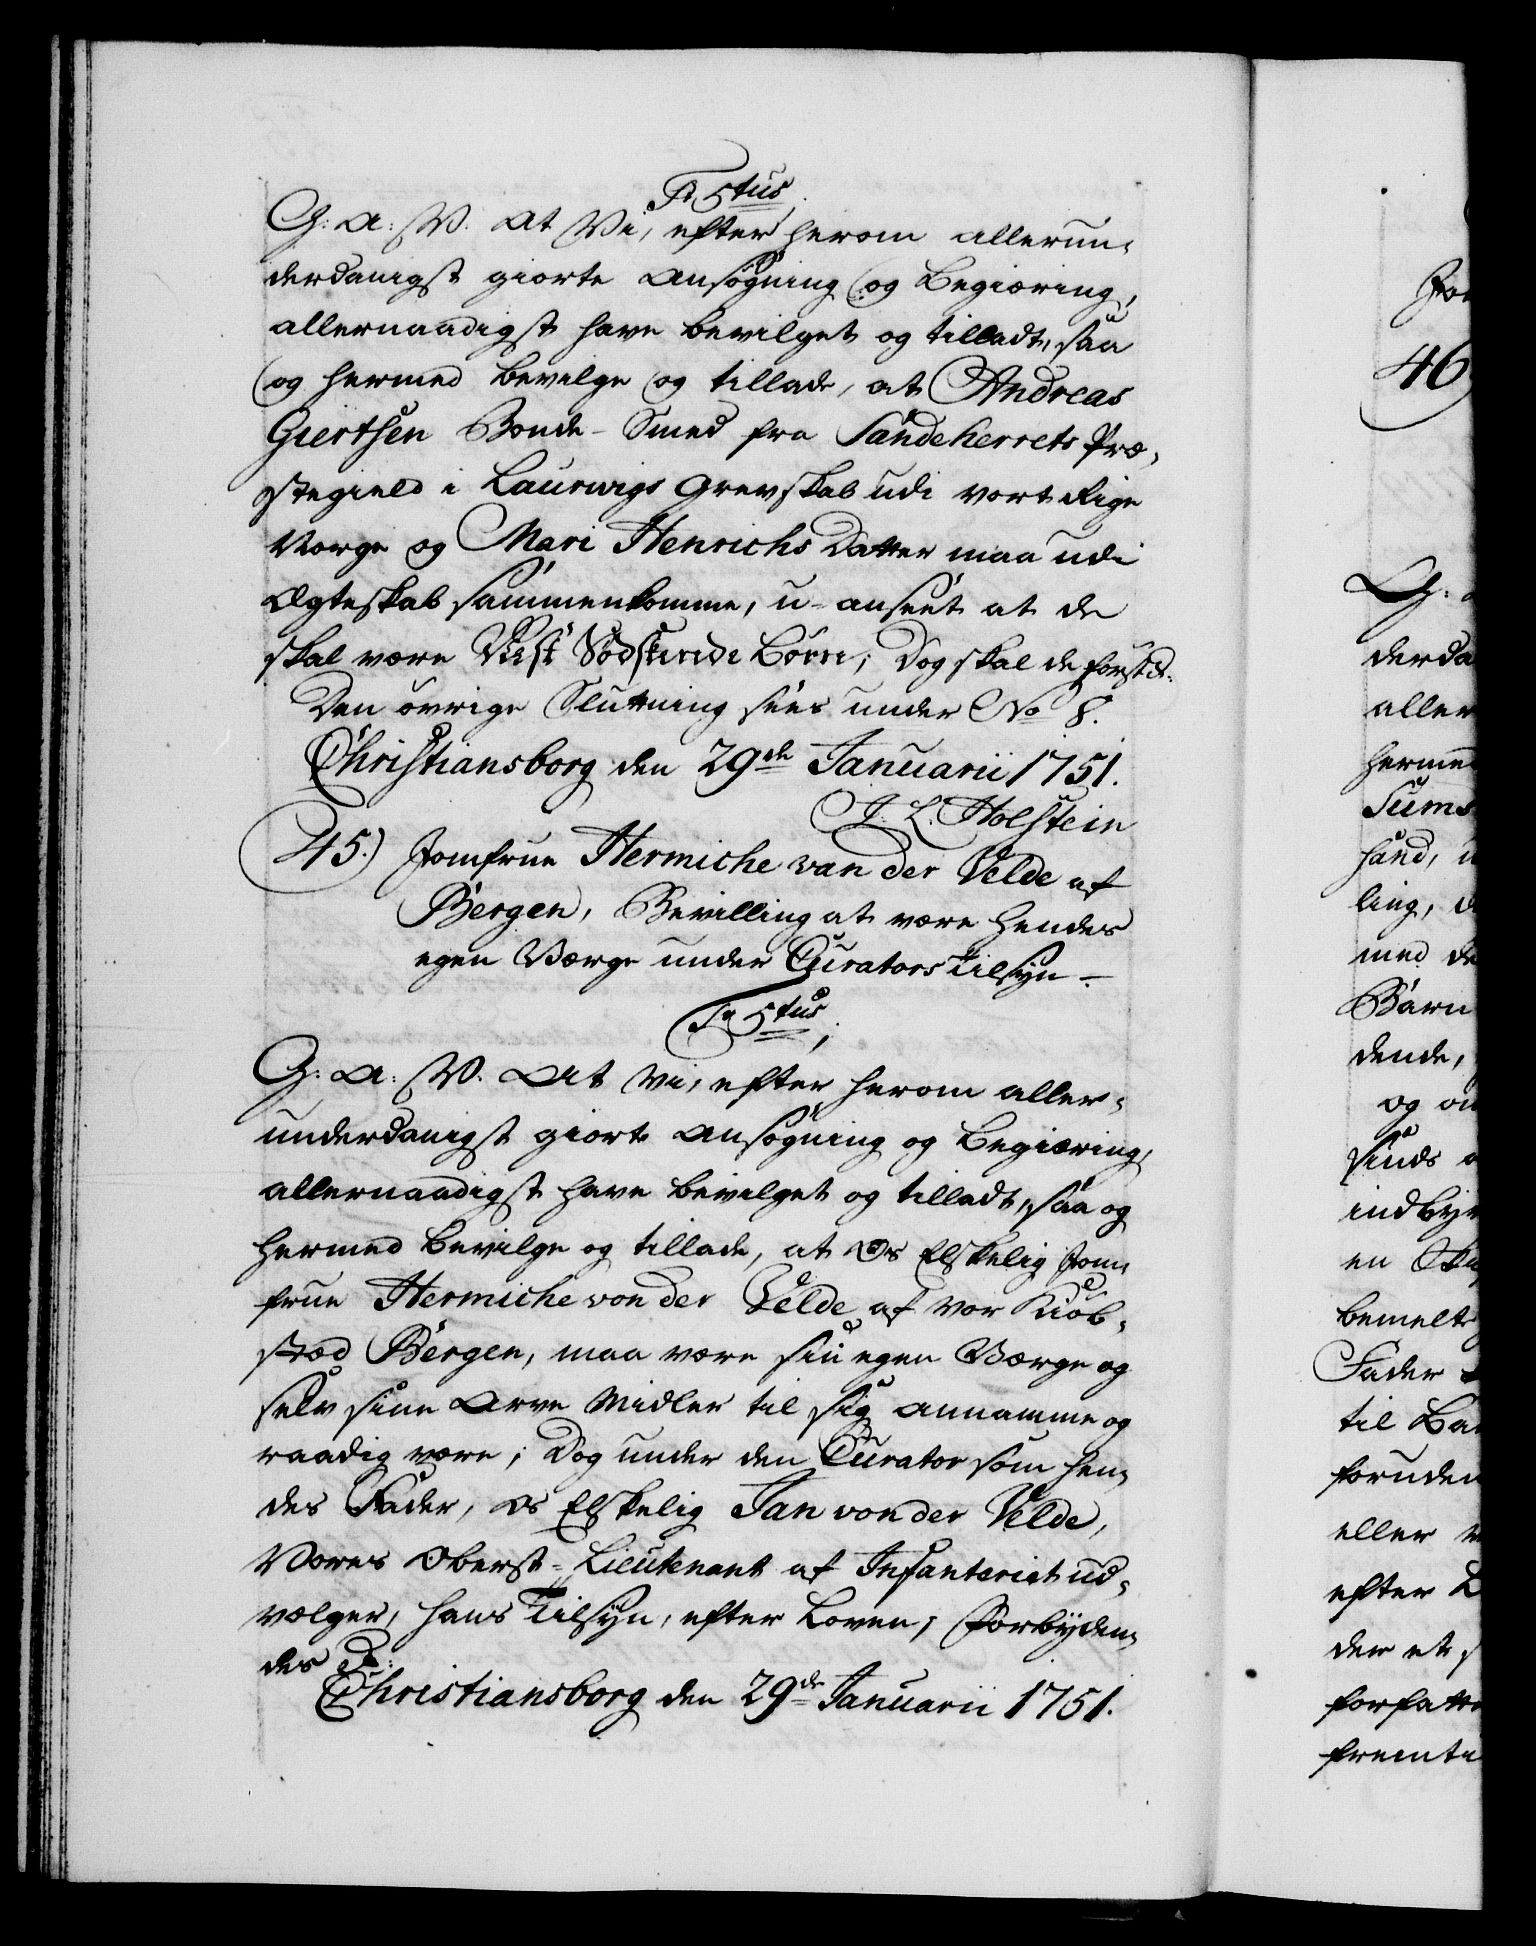 Fr 5tus
G: A: V. At Vi, efter herom allerun-
derdanigst giorte Ansøgning og Begiæring,
allernaadigst have bevilget og tilladt, saa
og hermed bevilge og tillade, at Andreas
Giertsen Bonde-Smed fra Sandeherrets Præ-
stegield i Laurwigs Grevskab udi vort Rige
Norge og Mari Henrichs Datter maa udi
Ægteskab sammenkomme, u-anseet at de
skal være Næst Sødskende Børn; Dog skal de først &.
Den øvrige Slutning sees under No 8.
Christiansborg den 29de Januarii 1751.
J. L. Holstein
45.) Jomfrue Hermiche van der Velde af
Bergen, Bevilling at være Hendes
egen Værge under Curators Tilsyn.
Fr 5tus,
G: A: V. At Vi, efter herom aller-
underdanigst giort Ansøgning og Begiæring,
allernaadigst have bevilget og tilladt, saa og
hermed bevilge og tillade, at Os Elskelig Jom-
frue Hermiche von der Velde af vor Kiøb-
stæd Bergen, maa være sin egen Værge og
selv sine Arve Midler til sig annamme og
raadig være; Dog under den Curator som hen-
des Fader, Os Elskelig Jan von der Velde,
Vores Oberst-Lieutenant af Infanteriet ud-
vælger, hans Tilsyn, efter Loven; Forbyden-
des &:
Christiansborg den 29de Januarii 1751.
46
G:
derda
aller
herme
Sums
haand, u
ling, d
med de
Børn
dende,
og on
sinds
indbyr
en
bemelte
Fader
til Ba
foruden
eller
efter L
der et
forfatte
fremte